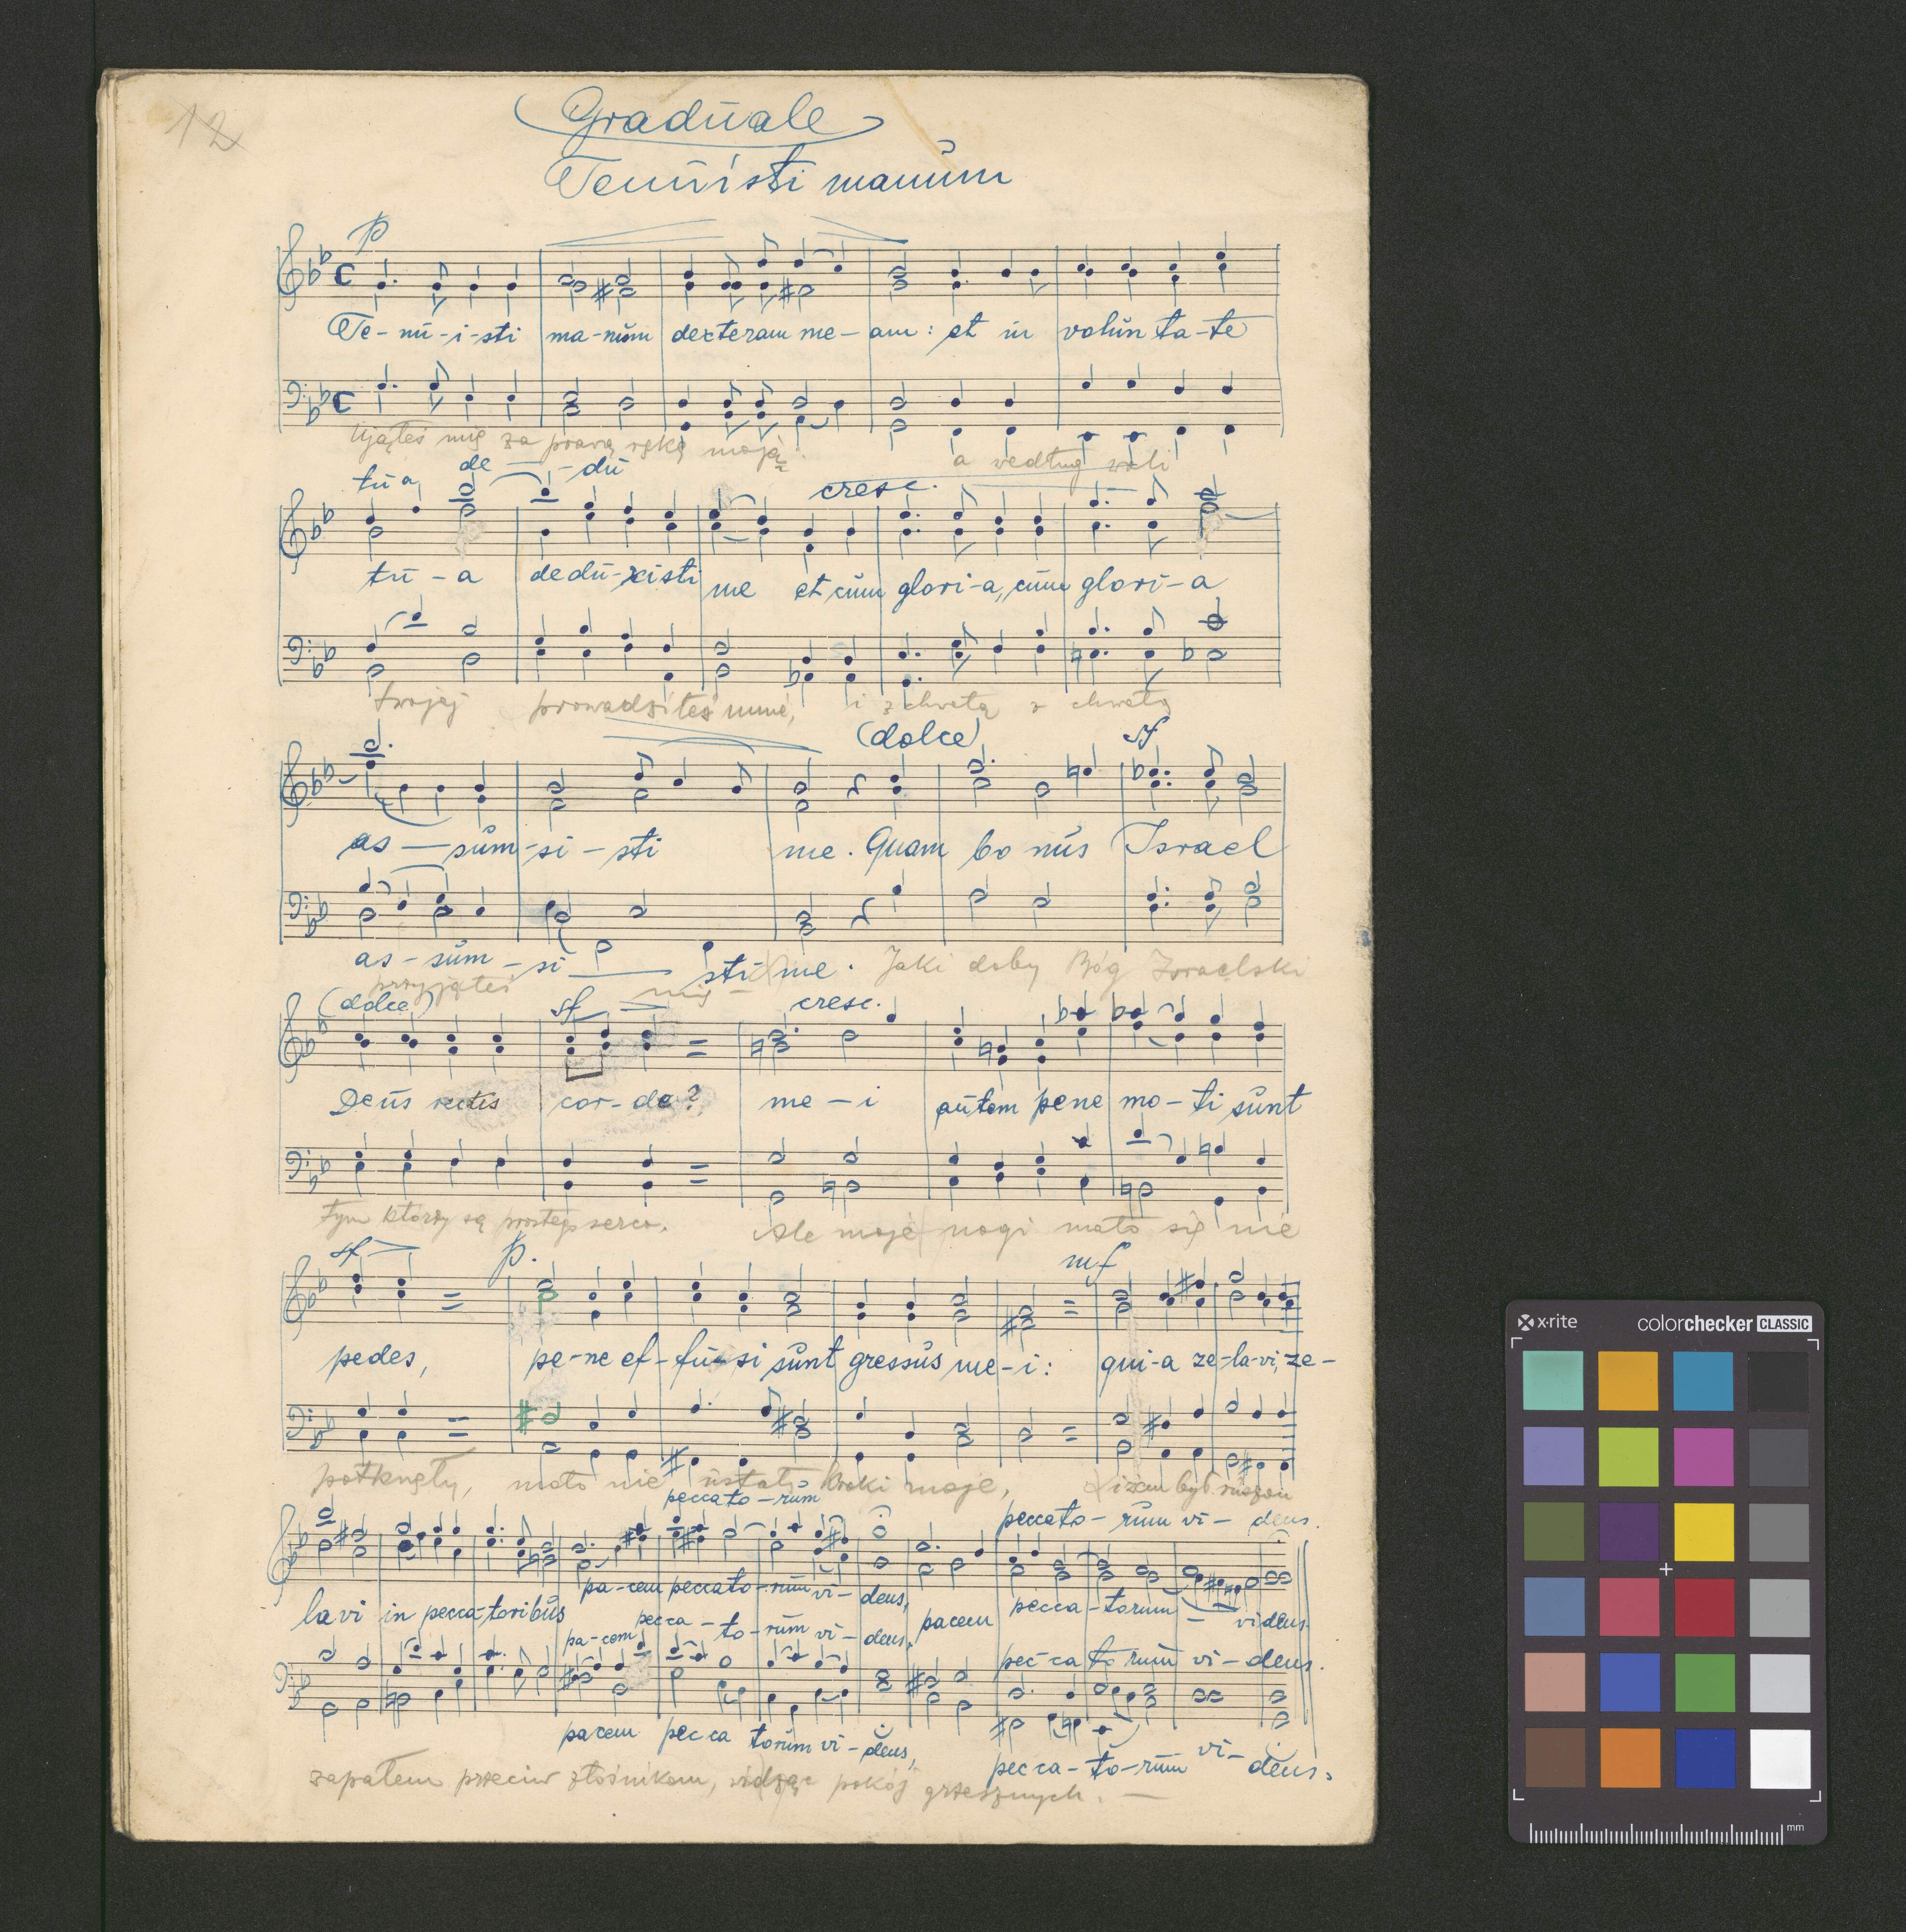 12
Graduale
Tenuisti manum
p
Te-nu-i-sti ma-num dexteram me-am: et in volun ta-te
Ująłeś mię za prawą rękę moją: a według woli
tu a de - du cresc.
tu-a dedu-xisti me et cum glori-a, cum glori-a
twojej prowadziłeś mnie, i z chwałą z chwałą
(dolce) sf
as-sum-si-sti me. Quam bo nus Israel
as-sum-si sti me. Jaki doby Bóg Izraelski
przyjąłeś mię
(dolce) sf cresc.
Deus rectis cor-de? me-i autem pene mo-ti sunt
tym którzy są sercu. Ale moje nogi mało się nie
sf p. mf
pedes, pe-ne ef-fu-si sunt gressus me-i: qui-a ze-la-vi, ze-
potknęły, mało nie ustały kroki moje, iżem był ruszon
peccato-rum peccato-rum vi-deus.
pa-cem peccato-rum vi-deus,
lavi in pecca-toribus pecca-to-rum vi-deus, pacem pecca-torum - videus.
pa-cem pec-ca to rum vi-deus.
pacem pec ca torum vi-deus, pec ca-to-rum vi-deus.
zapałem przeciw złośnikom, widząc pokój grzesznych. —
x-rite colorchecker CLASSIC
mm